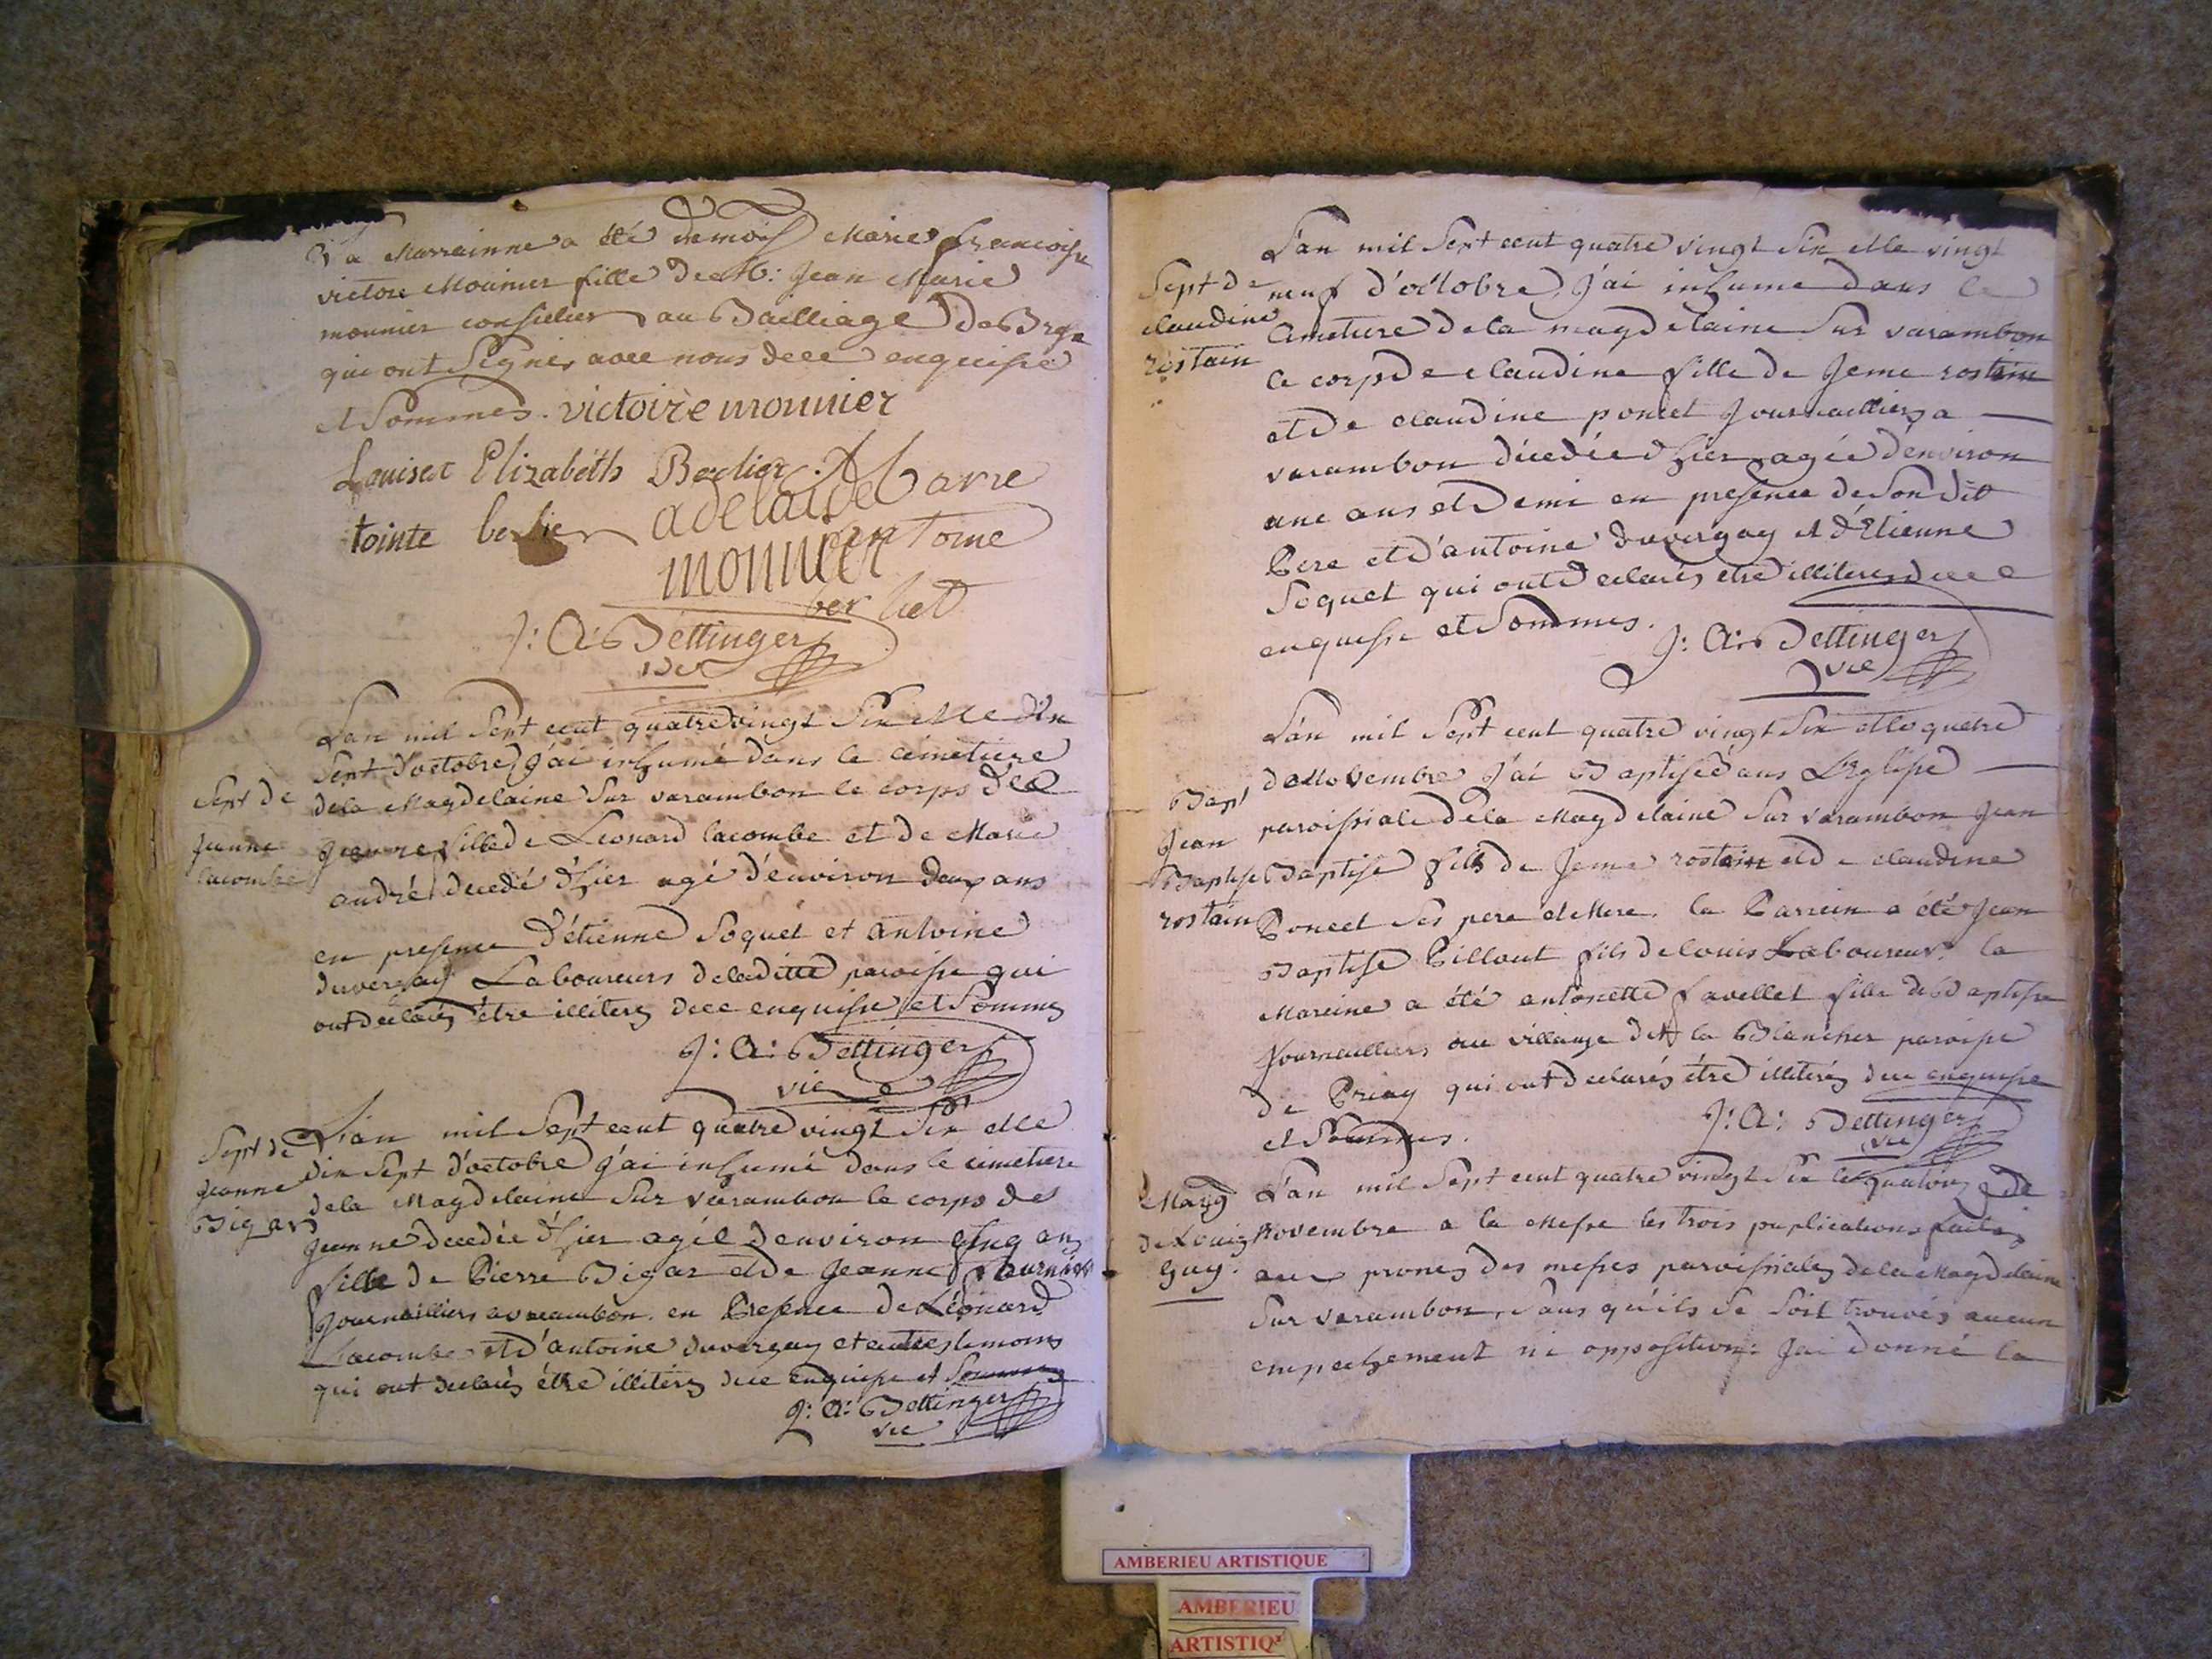 La Marrainne a été demois Marie francoise
victoire Mounier fille de M: Jean Marie
mounier consielier au Bailliage de
qui ont Signés avec nous de ce enquise
et Sommes. victoire mounier
Louise Elizabéth Berlier
adelaide
tointe berlier
monnier
J: A: Dettinger
vic
L'an mil Sept cent quatre vingt Six et le dix
Sept d'octobre j'ai inhumé dans le cimetiere
Sept de
jeanne
lacombe
dela Magdelaine Sur varambon le corps de
jeanne fille de Leonard lacombe et de Marie
andré decedé d'hier agé d'environ deux ans
en presence d'étienne Soquet et antoine
duvergay Laboureurs de laditte paroisse qui
ont declarés être illiterés de ce enquise et Sommes
J: A: Dettinger
vic
Sept de
jeanne
Bigar
L'an mil Sept cent quatre vingt Six et le
dix Sept d'octobre j'ai inhumé dans le cimetiere
dela Magdelaine Sur varambon le corps de
jeanne decedée d'hier agée d'environ cinq ans
fille de Pierre Bigar et de Jeanne
journailliers a varambon en Presence de Léonard
Lacombe et d'antoine duvergay et autres temoins
qui ont declarés être illiterés de ce enquise et Sommes
J: A: Dettinger
vic
Sept de
claudine
rostain
L'an mil Sept cent quatre vingt Six et le vingt
neuf d'octobre, j'ai inhume dans le
Cimetiere de la magdelaine Sur varambon
le corps de claudine fille de Jeme rostain
et de claudine poncet Journailliers a
varambon décedée d'hier agée d'environ
une ans et Demi en presence de Son dit
Pere et d'antoine duvergay et d'Etienne
Soquet qui ont declarés etre illiteres de ce
enquisse et Sommes.
J: A: Dettinger
vic
Bapt
Jean
Baptise
rostain
L'an mil Sept cent quatre vingt Six et le quatre
de Novembre j'ai Baptisé dans L'Eglise
paroissiale dela Magdelaine Sur varambon Jean
Baptise fils de Jeme rostain et de claudine
Poncet Ses pere et Mere. le Parrein a été Jean
Baptise Pillout fils de louis Laboureur. la
Mareine a été antonette favellet fille de Baptise
Journailliers au village de la Blancher paroise
de Priay qui ont declarés être illiterés de ce enquise
et Sommes.
J: A: Dettinger
vic
Marg
de Louis
Guy.
L'an mil Sept cent quatre vingt Six le quatorze de
Novembre a la Messe les trois puplications faites
aux prones des messes paroissiales de la Magdelaine
Sur varambon, Sans qu'ils Se Soit trouvés aucun
empechement ni opposition: jai donné la
AMBERIEU ARTISTIQUE
AMBERIEU
ARTISTIQ